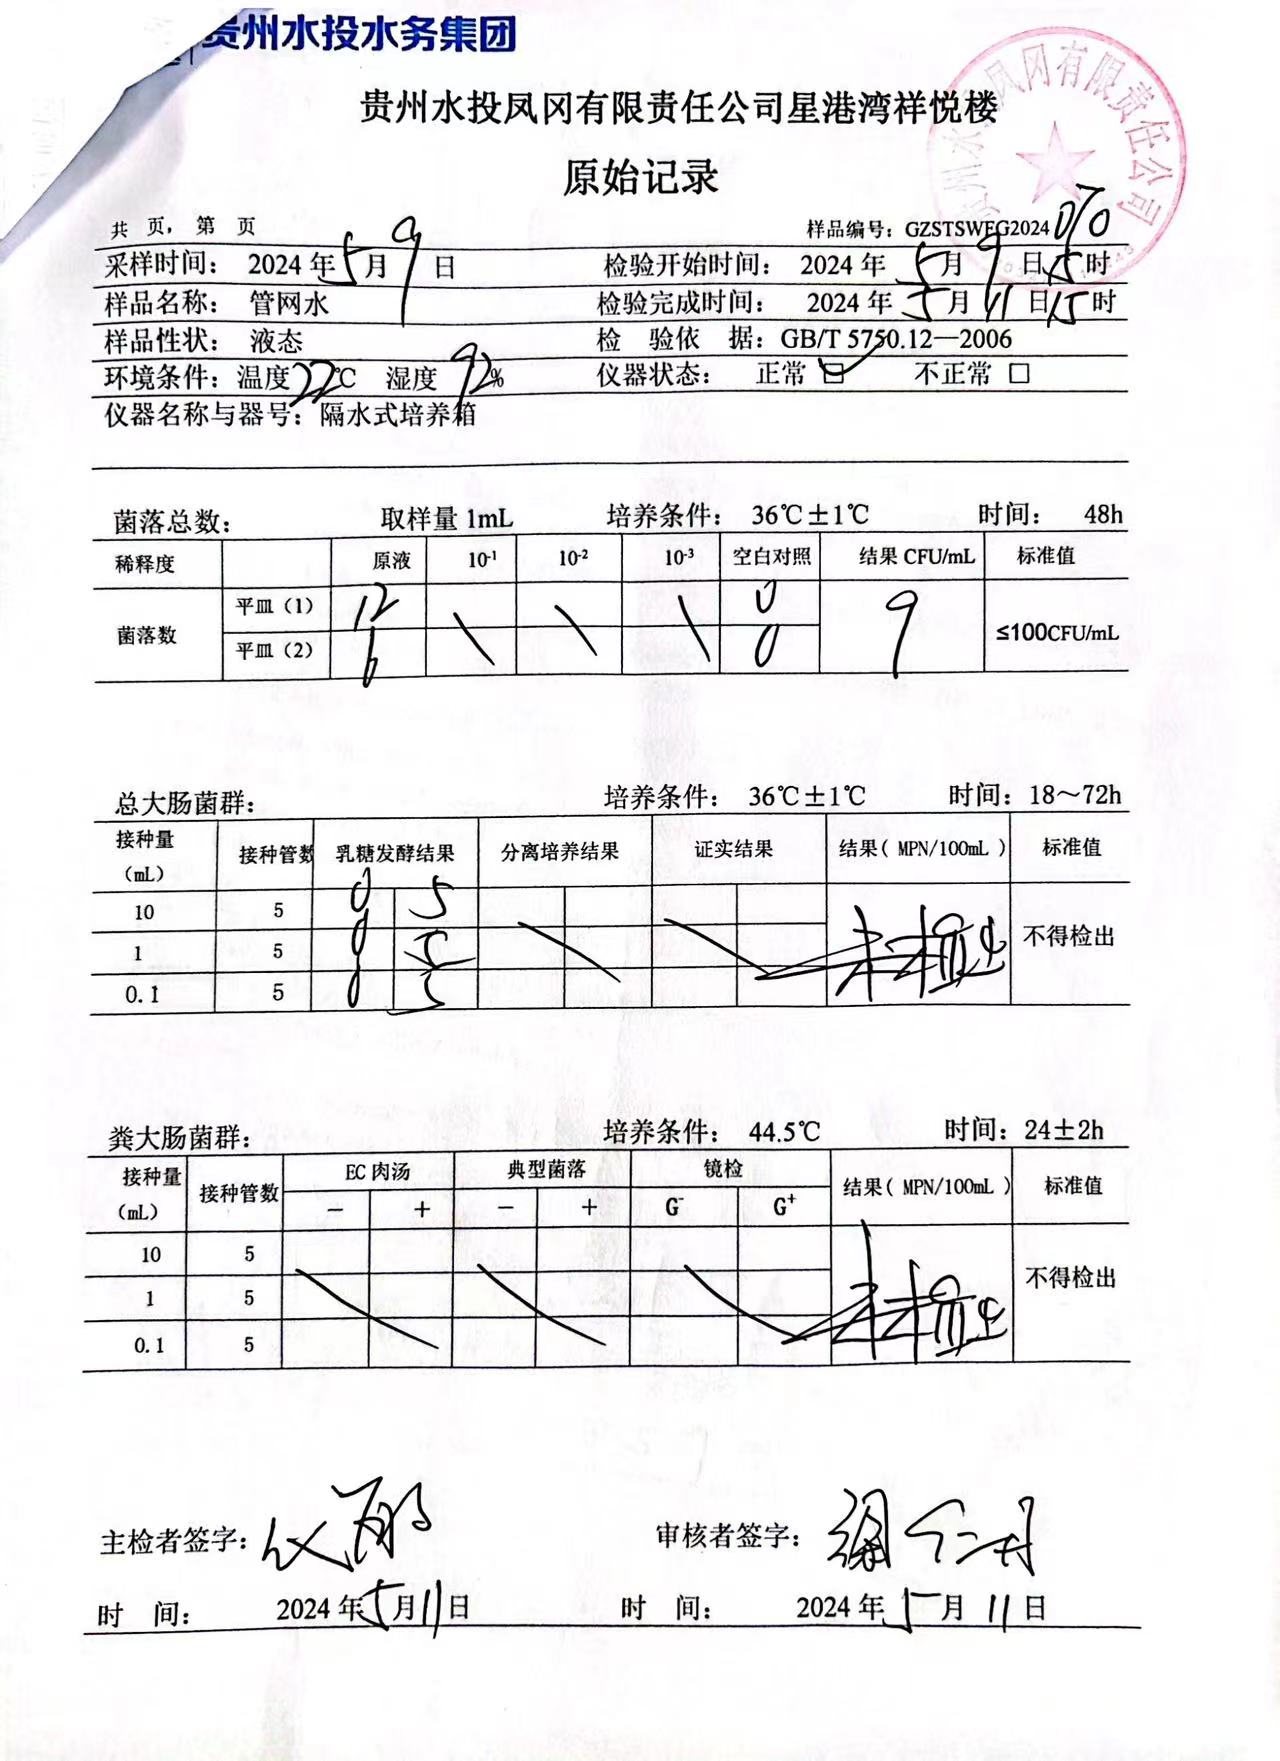 贵州水投水务集团
贵州水投凤冈有限责任公司星港湾祥悦楼
原始记录
共 页， 第 页 样品编号：GZSTSWFG2024 070
采样时间： 2024 年 5 月 9 日 检验开始时间： 2024 年 5 月 9 日 15 时
样品名称： 管网水 检验完成时间： 2024 年 5 月 11 日 15 时
样品性状： 液态 检 验依 据：GB/T 5750.12—2006
环境条件：温度 22 ℃ 湿度 92 % 仪器状态： 正常 ☑ 不正常 □
仪器名称与器号：隔水式培养箱
菌落总数： 取样量 1mL 培养条件： 36℃±1℃ 时间： 48h
稀释度 原液 10-1 10-2 10-3 空白对照 结果 CFU/mL 标准值
菌落数 平皿（1） 12 \ \ \ 0 9 ≤100CFU/mL
平皿（2） 6 0
总大肠菌群： 培养条件： 36℃±1℃ 时间：18～72h
接种量（mL） 接种管数 乳糖发酵结果 分离培养结果 证实结果 结果（MPN/100mL） 标准值
10 5 0 5 未检出 不得检出
1 5 0 5
0.1 5 0 5
粪大肠菌群： 培养条件： 44.5℃ 时间：24±2h
接种量（mL） 接种管数 EC 肉汤 典型菌落 镜检 结果（MPN/100mL） 标准值
－ ＋ － ＋ G- G+
10 5 未检出 不得检出
1 5
0.1 5
主检者签字： 审核者签字：
时 间： 2024 年 5 月 11 日 时 间： 2024 年 5 月 11 日